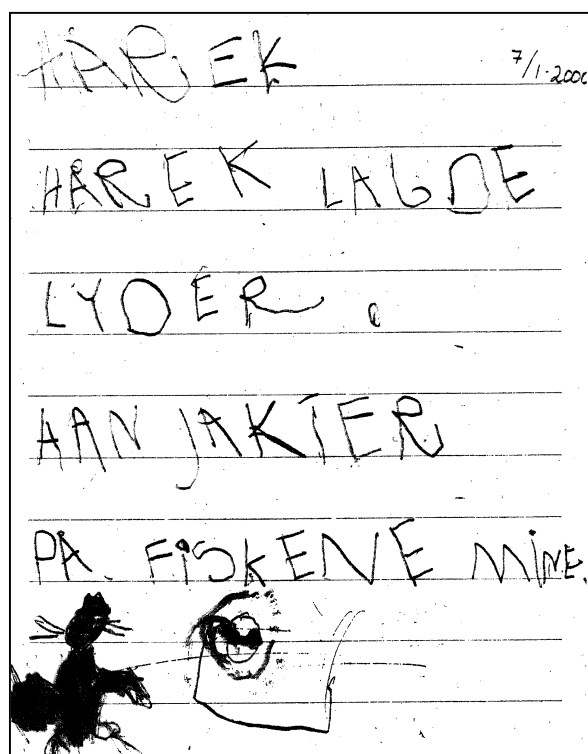 HÅREK 7/1-2000
HÅREK LAGDE
LYDER.
HAN JAKTER
PÅ FISKENE MINE.